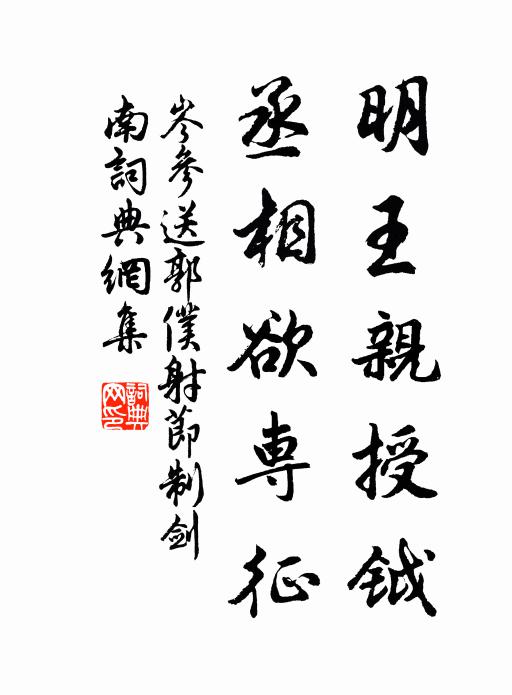 明王親授鉞
丞相欲專征
岑參送郭僕射節制劍
南詞典網集
詞典网印